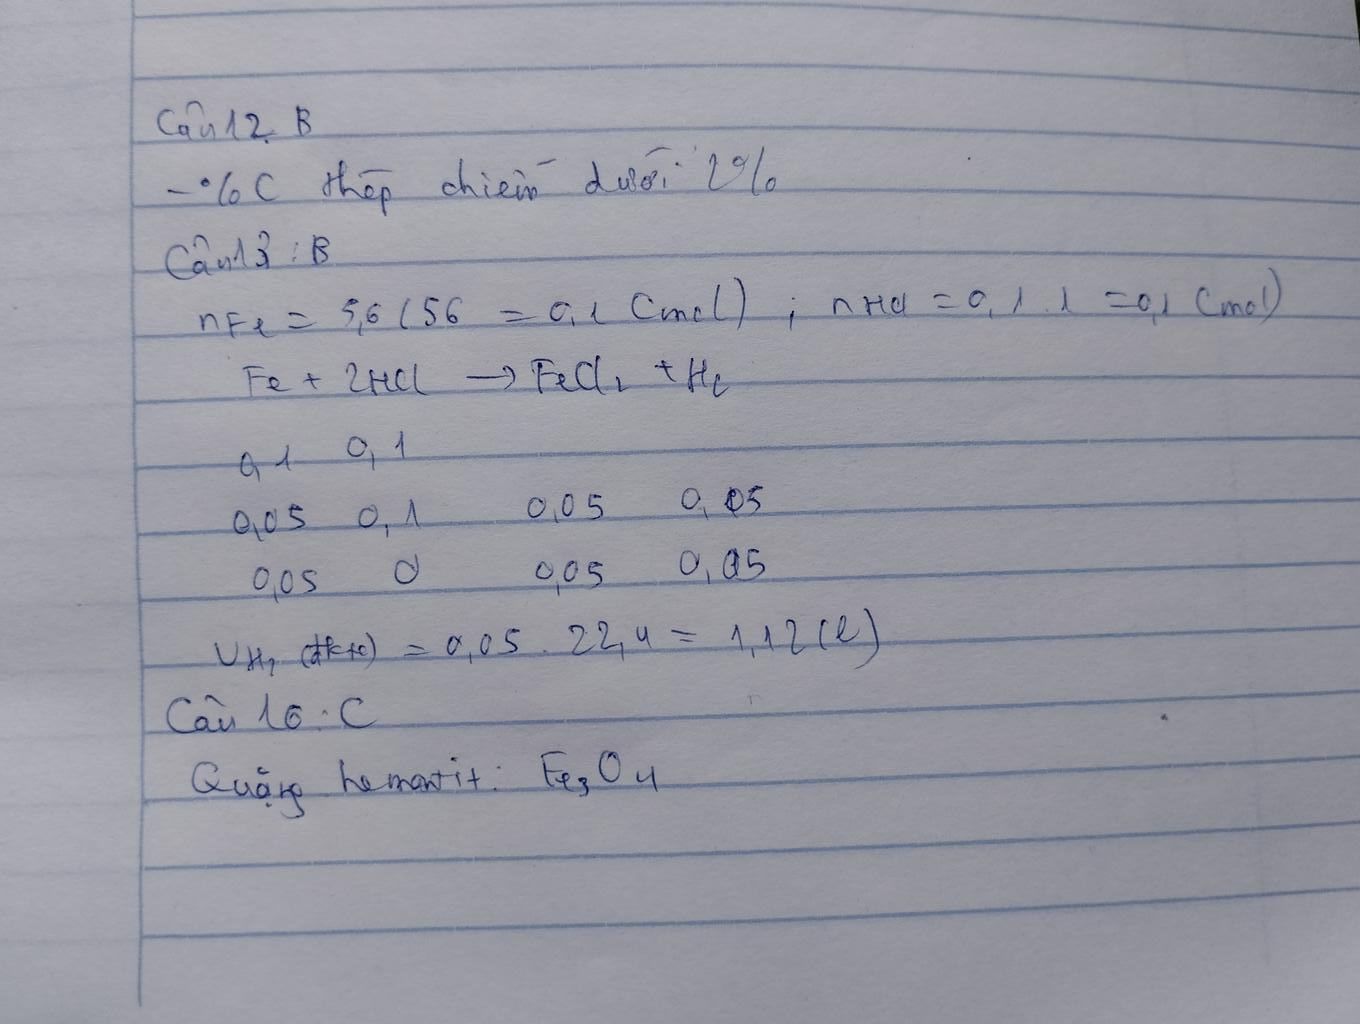 Câu 12. B
- %C thép chiếm dưới 2%
Câu 13: B
nFe = 5,6 / 56 = 0,1 (mol) ; nHCl = 0,1 . 1 = 0,1 (mol)
Fe + 2HCl → FeCl₂ + H₂
0,1 0,1
0,05 0,1 0,05 0,05
0,05 0 0,05 0,05
VH₂ (đktc) = 0,05 . 22,4 = 1,12 (l)
Câu 16. C
Quặng hematit: Fe₃O₄